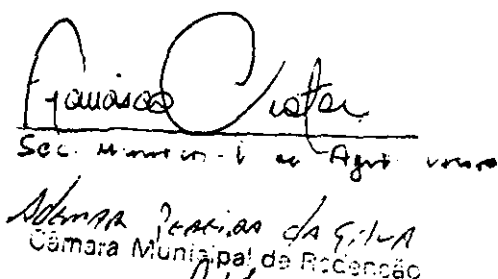 Francisco
Sec. Municipal de Agri
Ademar Pereira da Silva
Câmara Municipal de Redenção